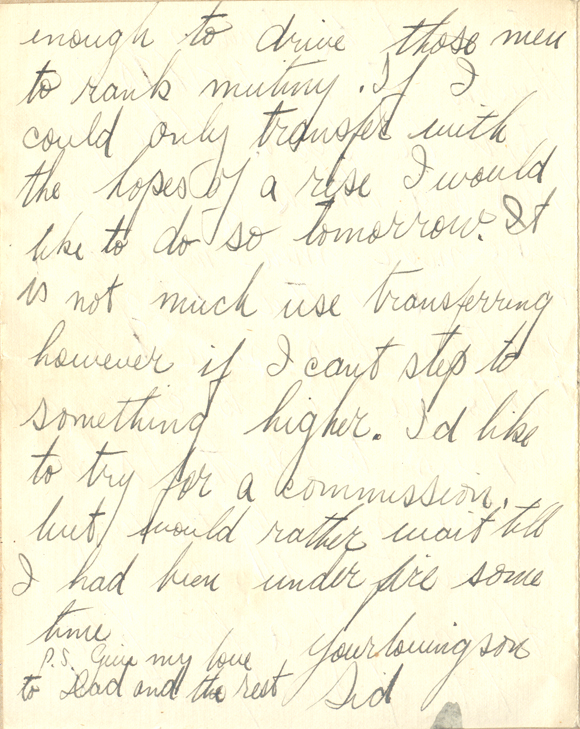 enough to drive those men
to rank mutiny. If I
could only transfer with
the hopes of a rise I would
like to do so tomorrow. It
is not much use transferring
however if I cant step to
something higher. I'd like
to try for a commission,
but would rather wait till
I had been under fire some
time
your loving son
Sid
P.S. Give my love
to Dad and the rest